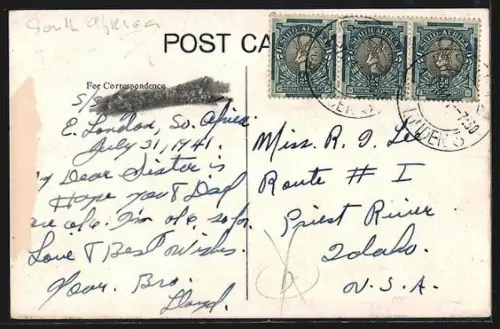 South Africa
POST CA
SOUTH AFRICA
For Correspondence
S/S
E. London, So. Africa.
July 31, 1941.
My Dear Sister is
Hope you & Dad
are o.k. I'm o.k. so far
Love & Best Wishes
Your Bro.
Lloyd.
Miss. R. I. Lee
Route # 1
Priest River
Idaho.
U.S.A.